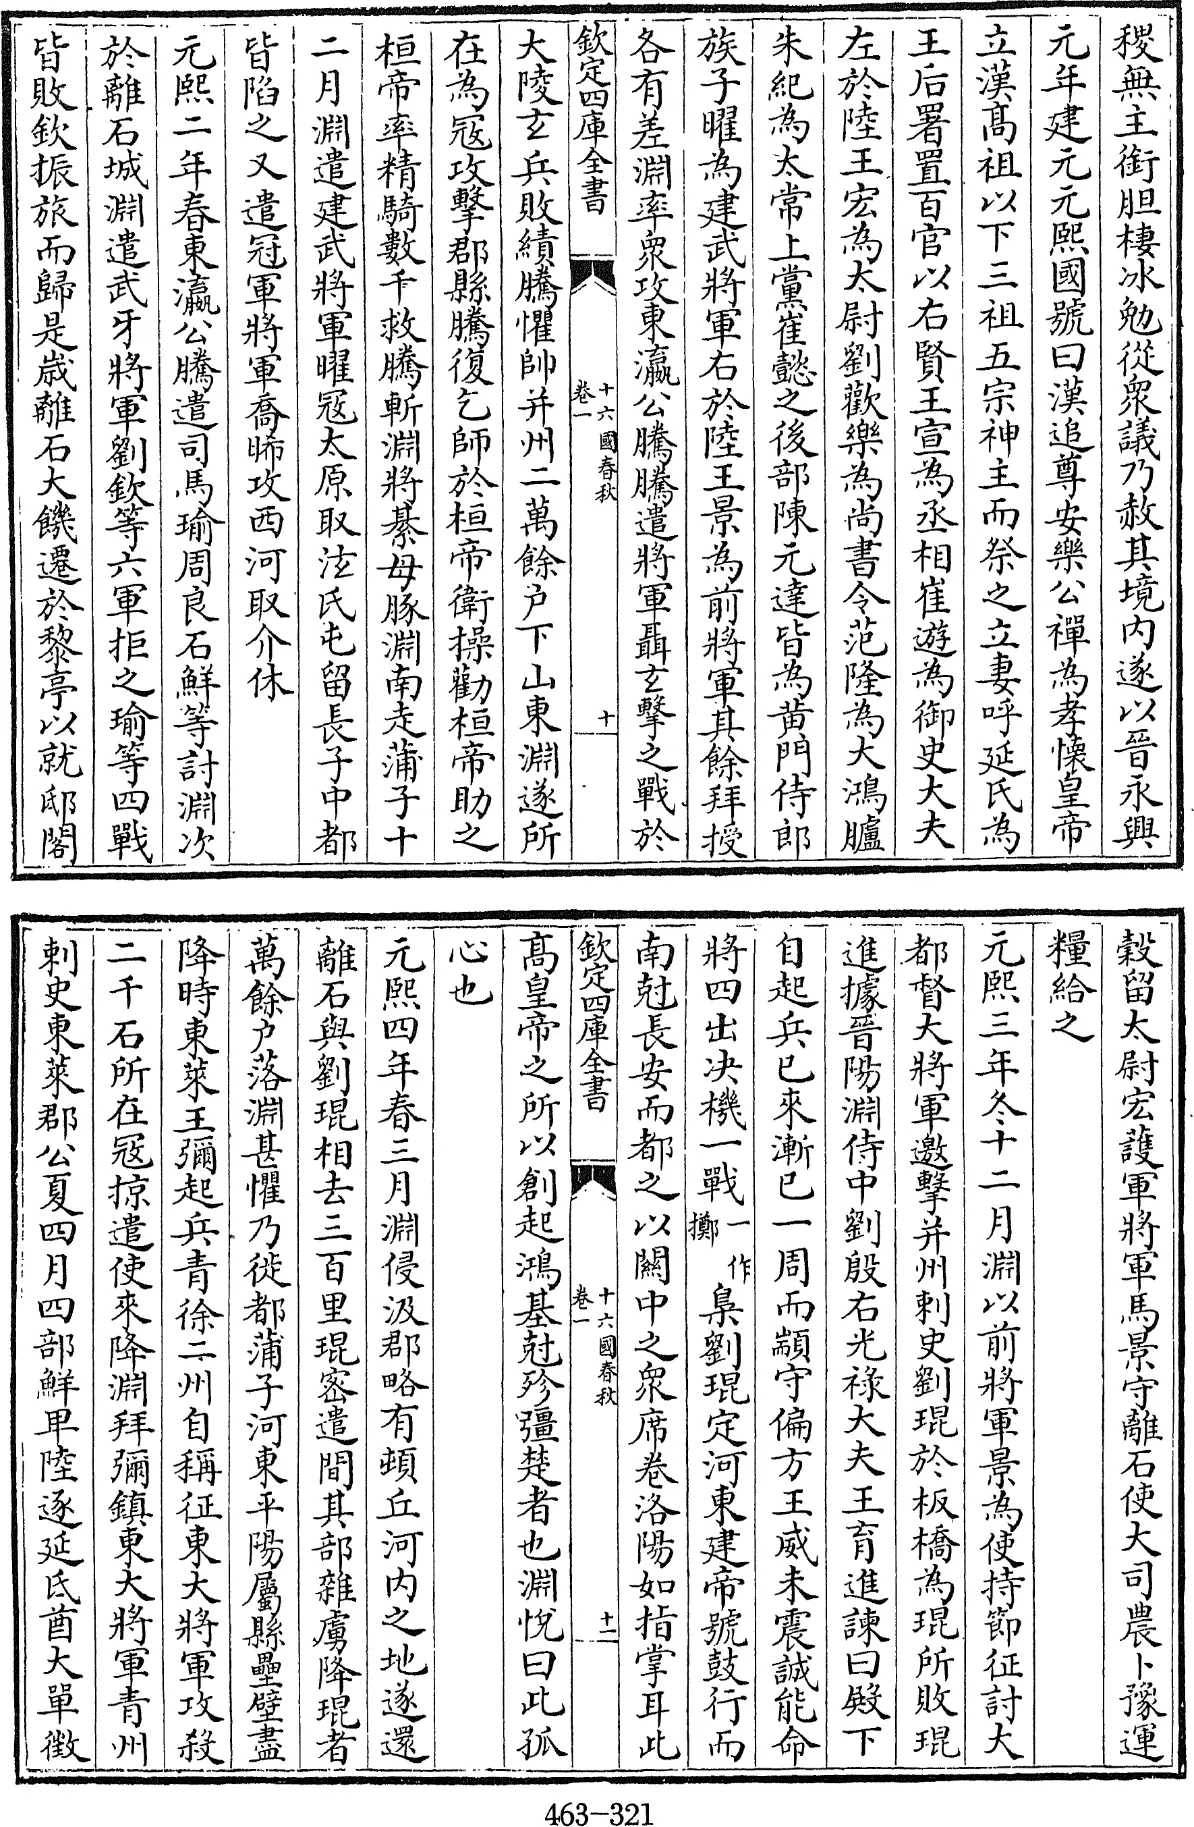 稷無主銜胆棲冰勉從衆議乃赦其境内遂以晉永興
元年建元元熙國號曰漢追尊安樂公禪為孝懷皇帝
立漢髙祖以下三祖五宗神主而祭之立妻呼延氏為
王后署置百官以右賢王宣為丞相崔遊為御史大夫
左於陸王宏為太尉劉歡樂為尚書令范隆為大鴻臚
朱紀為太常上黨崔懿之後部陳元達皆為黄門侍郎
族子曜為建武將軍右於陸王景為前將軍其餘拜授
各有差淵率衆攻東瀛公騰騰遣將軍聶玄擊之戰於
欽定四庫全書
十六國春秋
卷一
十
大陵玄兵敗績騰懼帥并州二萬餘户下山東淵遂所
在為冦攻擊郡縣騰復乞師於桓帝衛操勸桓帝助之
桓帝率精騎數千救騰斬淵將綦母豚淵南走蒲子十
二月淵遣建武將軍曜冦太原取泫氏屯留長子中都
皆陷之又遣冠軍將軍喬晞攻西河取介休
元熙二年春東瀛公騰遣司馬瑜周良石鮮等討淵次
於離石城淵遣武牙將軍劉欽等六軍拒之瑜等四戰
皆敗欽振旅而歸是歳離石大饑遷於黎亭以就邸閣
穀留太尉宏護軍將軍馬景守離石使大司農卜豫運
糧給之
元熙三年冬十二月淵以前將軍景為使持節征討大
都督大將軍邀擊并州刺史劉琨於板橋為琨所敗琨
進據晉陽淵侍中劉殷右光禄大夫王育進諫曰殿下
自起兵已來漸已一周而顓守偏方王威未震誠能命
將四出决機一戰一作擲梟劉琨定河東建帝號鼓行而
南尅長安而都之以關中之衆席卷洛陽如指掌耳此
欽定四庫全書
十六國春秋
卷一
十一
髙皇帝之所以創起鴻基尅殄彊楚者也淵悦曰此孤
心也
元熙四年春三月淵侵汲郡略有頓丘河内之地遂還
離石與劉琨相去三百里琨宻遣間其部雜虜降琨者
萬餘户落淵甚懼乃徙都蒲子河東平陽屬縣壘壁盡
降時東萊王彌起兵青徐二州自稱征東大將軍攻殺
二千石所在冦掠遣使來降淵拜彌鎮東大將軍青州
刺史東萊郡公夏四月四部鮮卑陸逐延氐酋大單徴
463-321